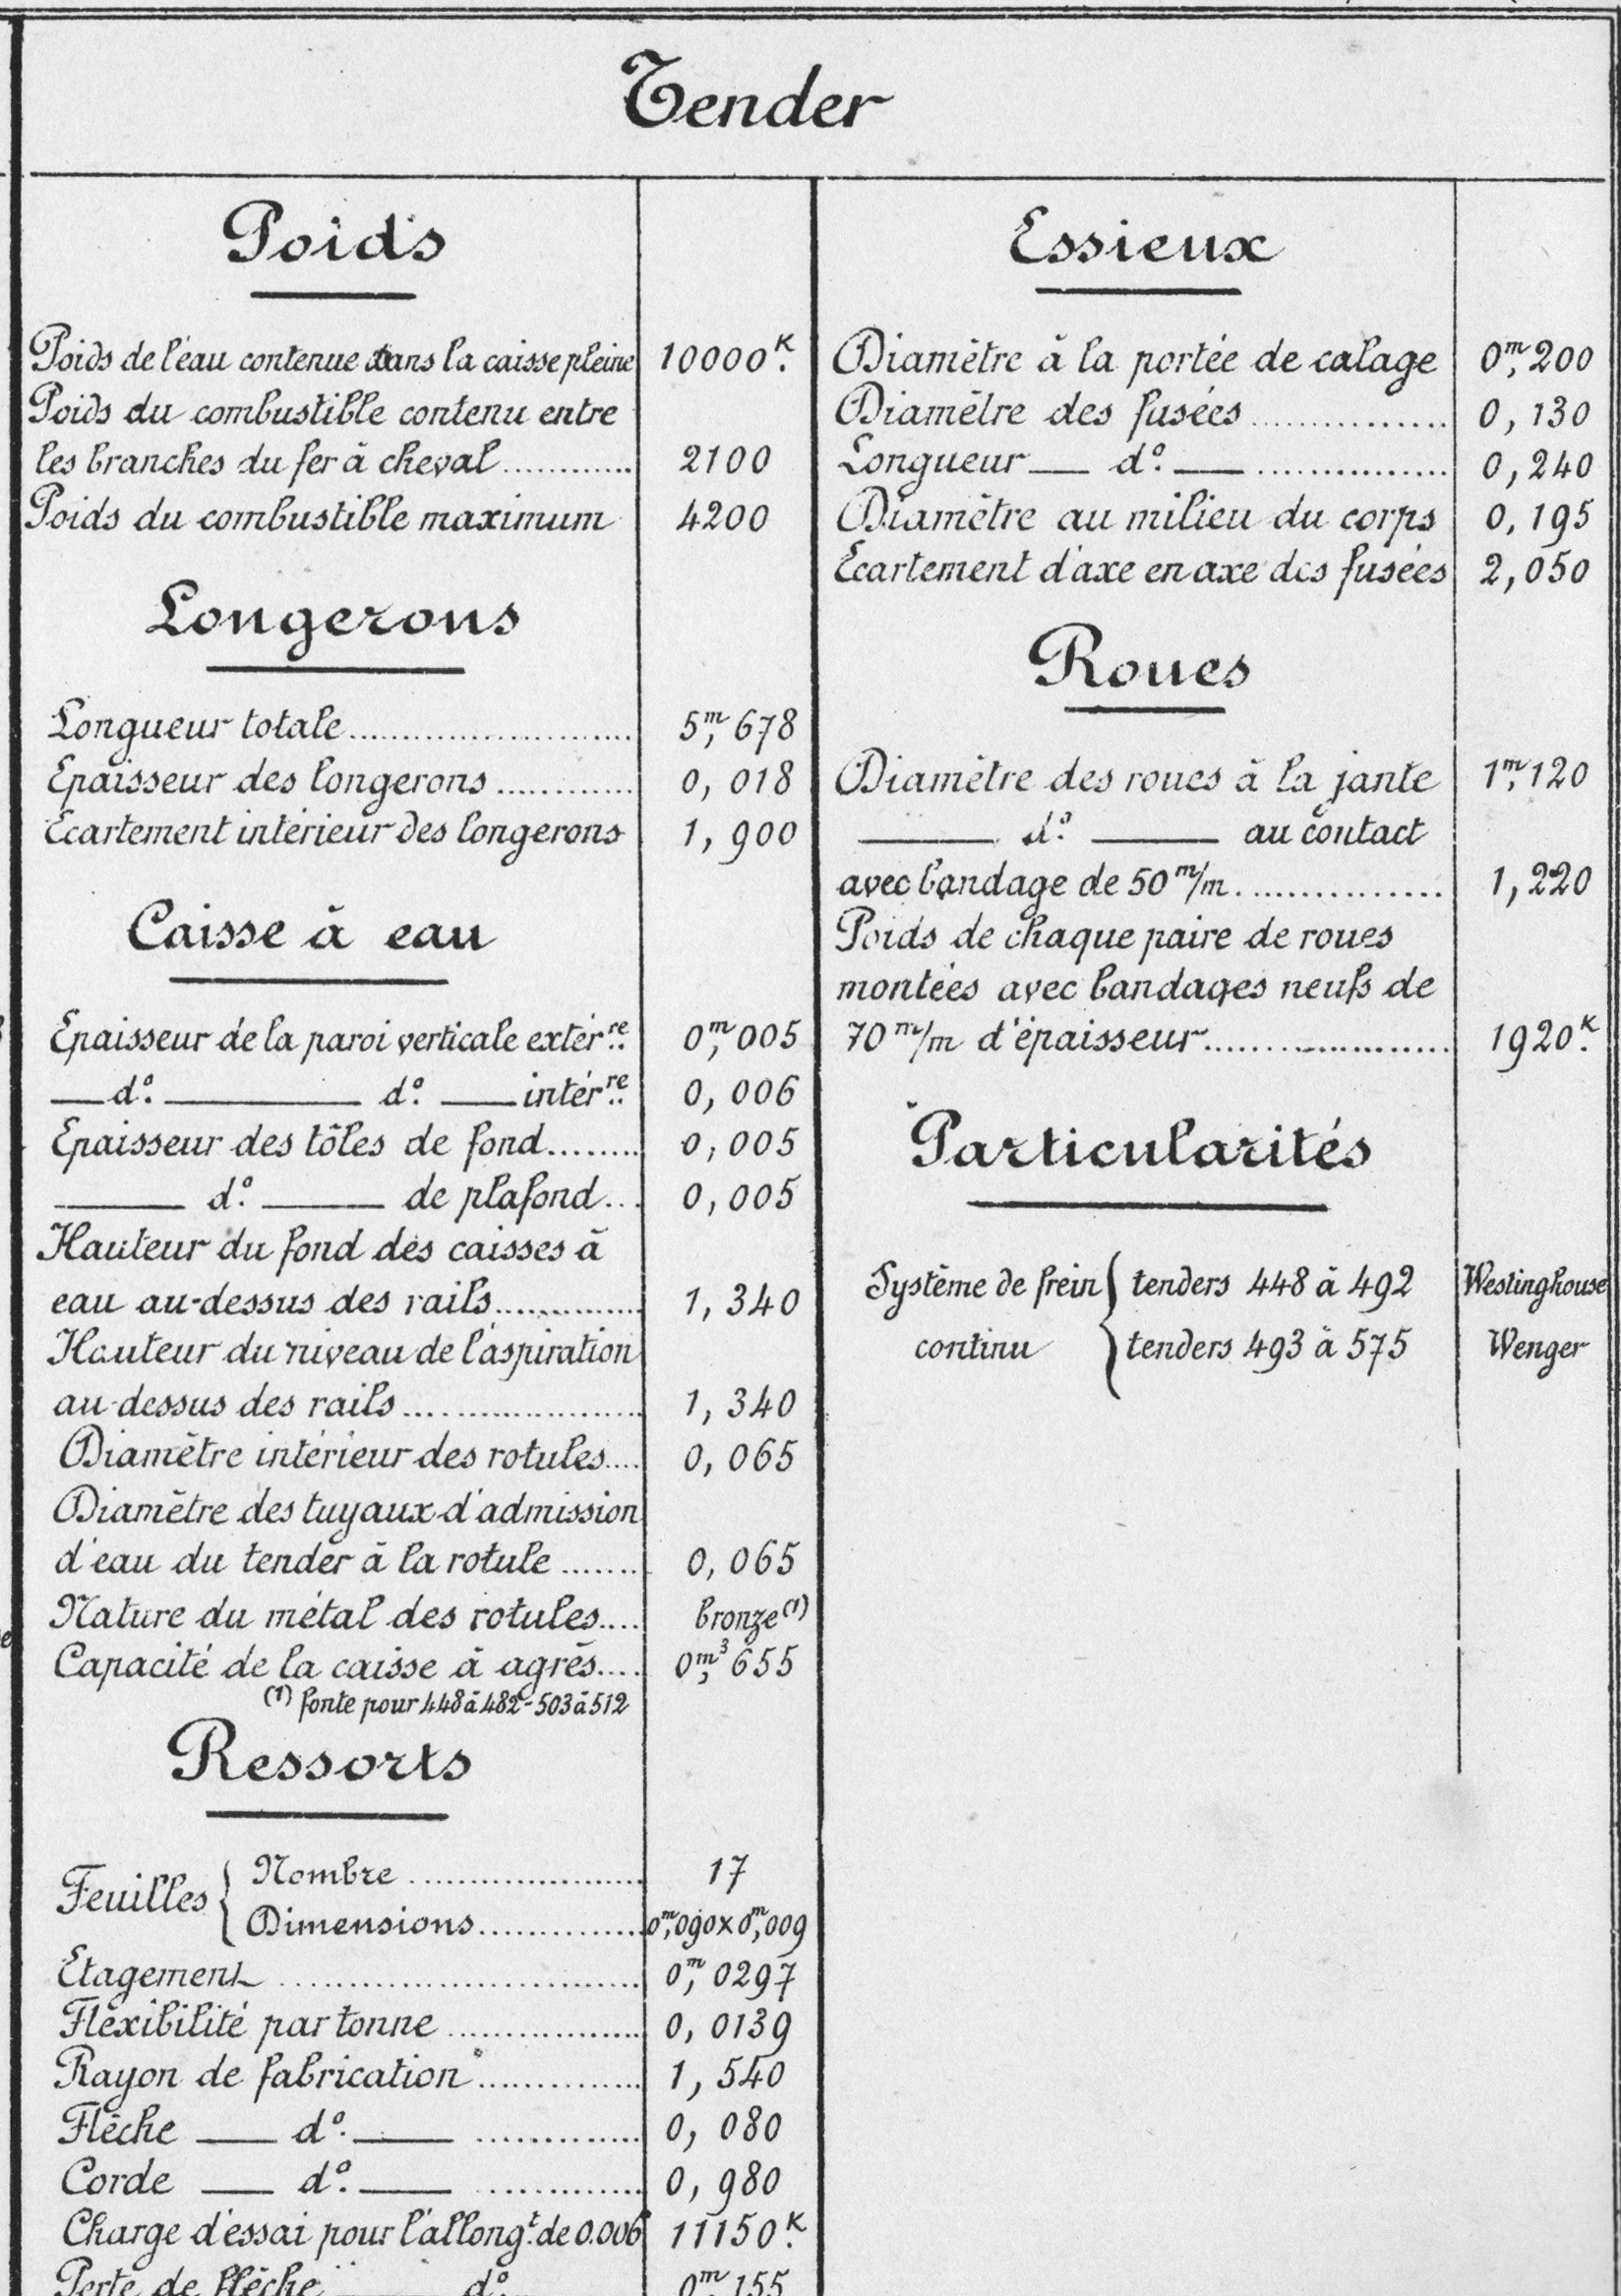 Tender
Poids
Poids de l'eau contenue dans la caisse pleine 10000K.
Poids du combustible contenu entre
les branches du fer à cheval............ 2100
Poids du combustible maximum 4200
Longerons
Longueur totale........................ 5m,678
Epaisseur des longerons............ 0,018
Ecartement intérieur des longerons 1,900
Caisse à eau
Epaisseur de la paroi verticale extérre. 0m,005
— do. — do. — intérre. 0,006
Epaisseur des tôles de fond........ 0,005
— do. — de plafond... 0,005
Hauteur du fond des caisses à
eau au-dessus des rails.............. 1,340
Hauteur du niveau de l'aspiration
au-dessus des rails...................... 1,340
Diamètre intérieur des rotules.... 0,065
Diamètre des tuyaux d'admission
d'eau du tender à la rotule....... 0,065
Nature du métal des rotules.... bronze(1)
Capacité de la caisse à agrès.... 0m3,655
(1) fonte pour 448 à 482-503 à 512
Ressorts
Feuilles { Nombre...................... 17
Dimensions............... 0m,090x0m,009
Etagement.................................. 0m,0297
Flexibilité par tonne.................. 0,0139
Rayon de fabrication............... 1,540
Flèche — do. — .............. 0,080
Corde — do. — .............. 0,980
Charge d'essai pour l'allongt. de 0.006 11150K.
Perte de flèche — do. 0m,155
Essieux
Diamètre à la portée de calage 0m,200
Diamètre des fusées............... 0,130
Longueur — do. — ................ 0,240
Diamètre au milieu du corps 0,195
Ecartement d'axe en axe des fusées 2,050
Roues
Diamètre des roues à la jante 1m,120
— do. — au contact
avec bandage de 50 m/m............... 1,220
Poids de chaque paire de roues
montées avec bandages neufs de
70 m/m d'épaisseur..................... 1920K.
Particularités
Système de frein { tenders 448 à 492 Westinghouse
continu tenders 493 à 575 Wenger